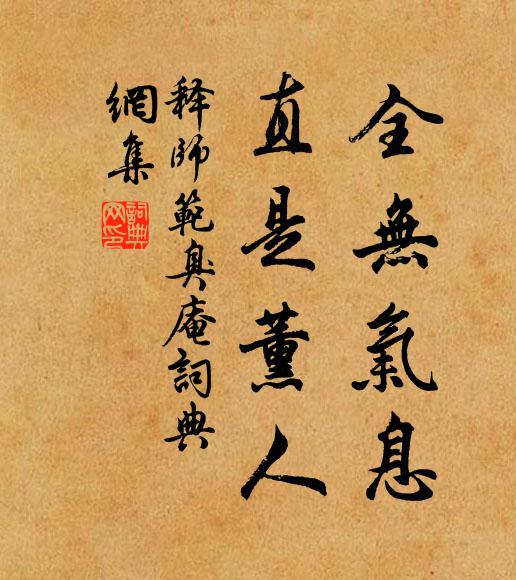 全無氣息
直是薰人
释師範臭庵詞典
網集
詞典
网印